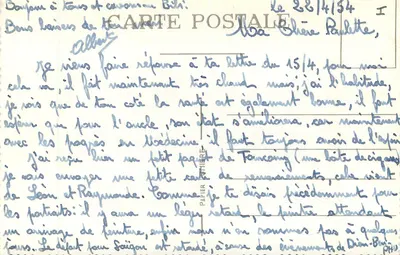 Bonjour à tous et caresses à Bibi.
Bons baisers de ton mari
Albert
CARTE POSTALE
le 22/4/54
I
Ma Chère Paulette,
Je viens faire réponse à ta lettre du 15/4, pour moi
cela va, il fait maintenant très chaud mais, j'ai l'habitude,
je vois que de ton coté la santé est également bonne, il faut
espérer que pour l'oncle, son état s'améliorera, car maintenant
avec les progrès en Médecine, il faut toujours avoir de l'espoir
J'ai reçu hier un petit paquet de Tourcoing (une boîte de cigares)
je vais envoyer une petite carte de remerciements, cela vient
de Léon et Raymonde. Comme je te disais précédemment pour
les portraits: il y aura un léger retard, le peintre attendant
un arrivage de peinture, enfin nous n'en sommes pas à quelques
jours. Le départ pour Saïgon est retardé, à cause des évènements de Dien-Bien
Phu